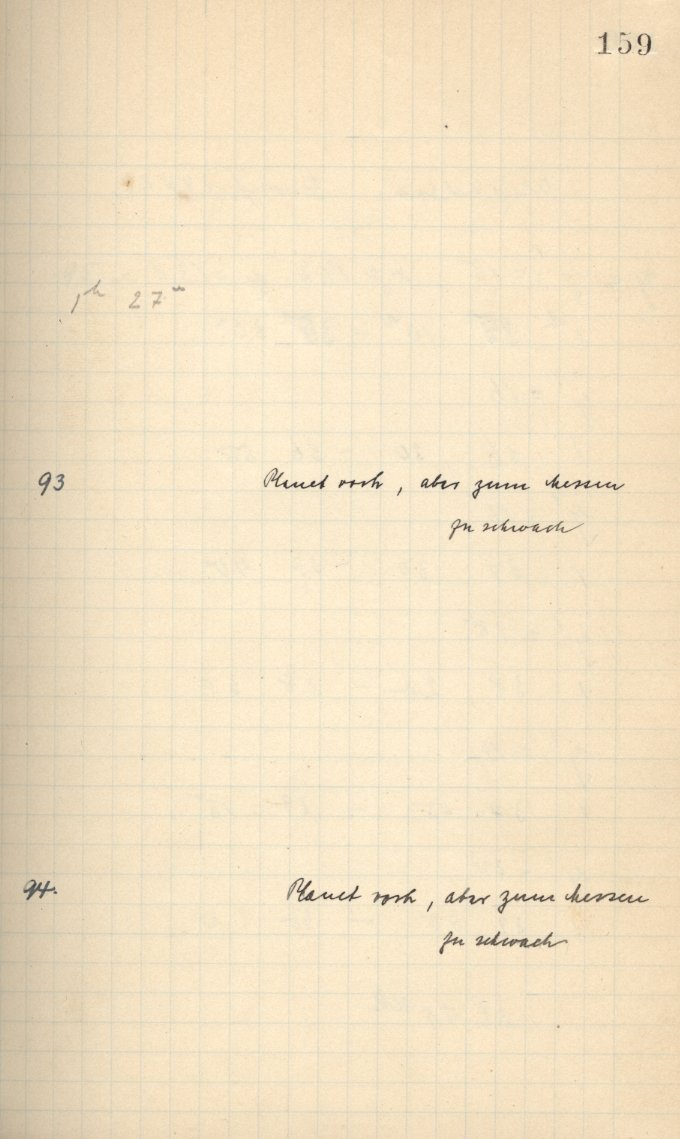 159
1h 27m
93 Planet vorh, aber zum Messen
zu schwach
94. Planet vorh, aber zum Messen
zu schwach